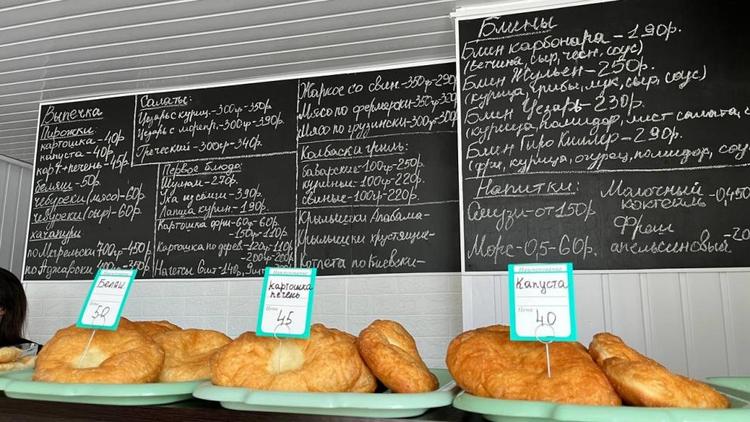 Выпечка
Пирожки:
картошка - 40р.
капуста - 40р.
кар+печень - 45р.
беляш - 50р.
чебуреки (мясо) - 60р.
чебуреки (сыр) - 60р.
хачапури
по Мегрельски 700гр - 450р.
по Аджарски 400гр - 350
Салаты:
Цезарь с куриц. - 300гр - 350р.
Цезарь с - 300гр - 390р.
Греческий - 300гр - 340р.
Первое блюдо:
Шулюм - 270р.
Уха из - 390р.
Лапша курин. - 190р.
Картошка фри - 60гр - 60р.
150гр - 110р.
Картошка по дерев. - 120гр - 110р.
- 200гр - 200р.
Нагетсы 6шт - 140р, 9шт
Жаркое со свин - 350гр - 290р.
Мясо по фермерски - 350гр 300р
Мясо по грузински - 300гр - 300р.
Колбаски гриль:
баварские - 100гр - 250р.
куриные - 100гр - 220р.
свиные - 100гр - 220р.
Крылышки Алабама -
Крылышки хрустящие -
Котлета по Киевски -
Блины
Блин карбонара - 190р.
(ветчина, сыр, чесн, соус)
Блин Жульен - 250р.
(курица, грибы, лук, сыр, соус)
Блин Цезарь - 230р.
(курица, помидор, лист салата, с
Блин Гиро Киллер - 290р.
(фри, курица, огурец, помидор, соус
Напитки:
Смузи - от 150р
Морс - 0,5 - 60р.
Молочный - 0,4
коктейль
Фреш - 20
апельсиновый
Беляш
50
картошка
печень
Цена
45
Капуста
Цена
40